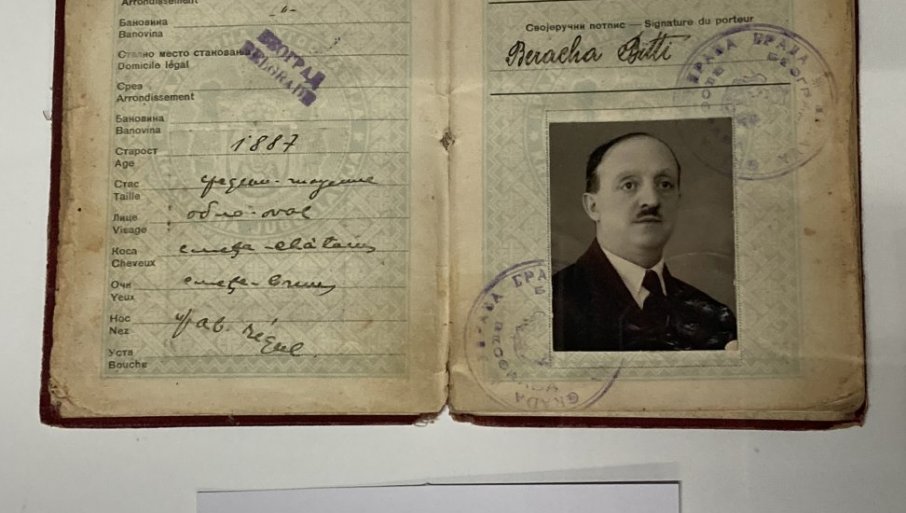 Arrondissement
Бановина
Banovina
Стално место становања
Domicile légal
БЕОГРАД
BELGRADE
Срез
Arrondissement
Бановина
Banovina
Старост
Age
1887
Стас
Taille
средњи - moyenne
Лице
Visage
обло - oval
Коса
Cheveux
смеђа - châtains
Очи
Yeux
смеђе - bruns
Нос
Nez
Уста
Bouche
прав. régul.
Својеручни потпис — Signature du porteur
Beracha Bitti
УПРАВА ГРАДА